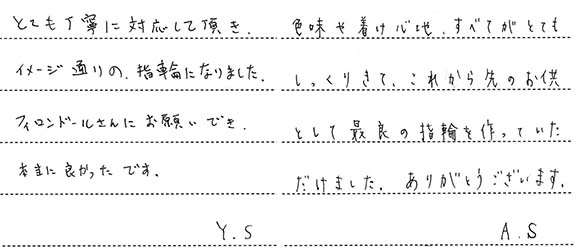 とても丁寧に対応して頂き、
イメージ通りの、指輪になりました。
フィロンドールさんにお願いでき、
本当に良かったです。
Y.S
色味や着け心地、すべてがとても
しっくりきて、これから先のお供
として最良の指輪を作っていた
だけました。ありがとうございます。
A.S